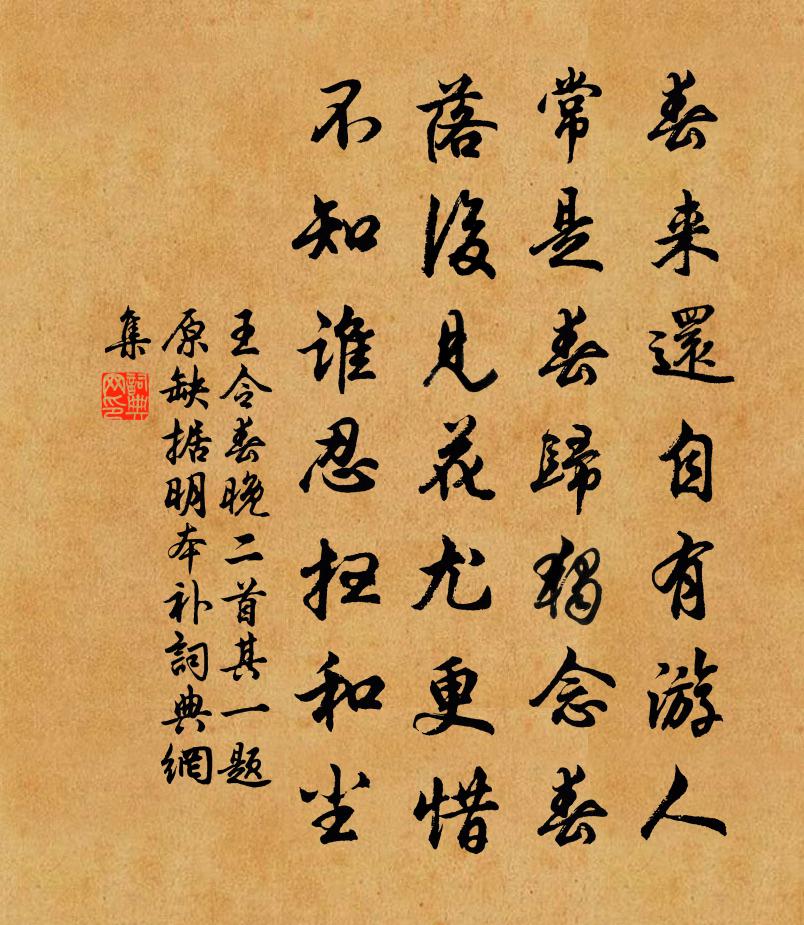 春来還自有游人
常是春歸獨念春
落後見花尤更惜
不知誰忍掃和尘
王令春晚二首其一题
原缺据明本补詞典網
集
詞典
网印